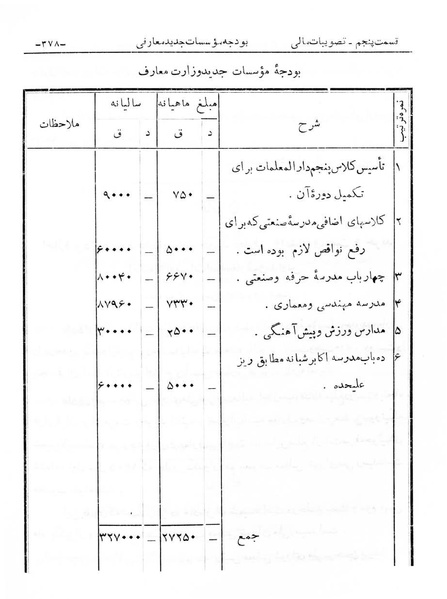 قسمت پنجم - تصویبات مالی بودجه مؤسسات جدید معارفی -۳۷۸-
بودجهٔ مؤسسات جدید وزارت معارف
نمره ترتیب شرح مبلغ ماهیانه سالیانه ملاحظات
د ق د ق
۱ تأسیس کلاس پنجم دارالمعلمات برای
تکمیل دورهٔ آن . – ۷۵۰ – ۹۰۰۰
۲ کلاسهای اضافی مدرسهٔ صنعتی که برای
رفع نواقص لازم بوده است . – ۵۰۰۰ – ۶۰۰۰۰
۳ چهار باب مدرسهٔ حرفه و صنعتی . – ۶۶۷۰ – ۸۰۰۴۰
۴ مدرسه مهندسی و معماری . – ۷۳۳۰ – ۸۷۹۶۰
۵ مدارس ورزش و پیش آهنگی . – ۲۵۰۰ – ۳۰۰۰۰
۶ ده باب مدرسه اکابر شبانه مطابق ریز
علیحده . – ۵۰۰۰ – ۶۰۰۰۰
جمع – ۲۷۲۵۰ – ۳۲۷۰۰۰